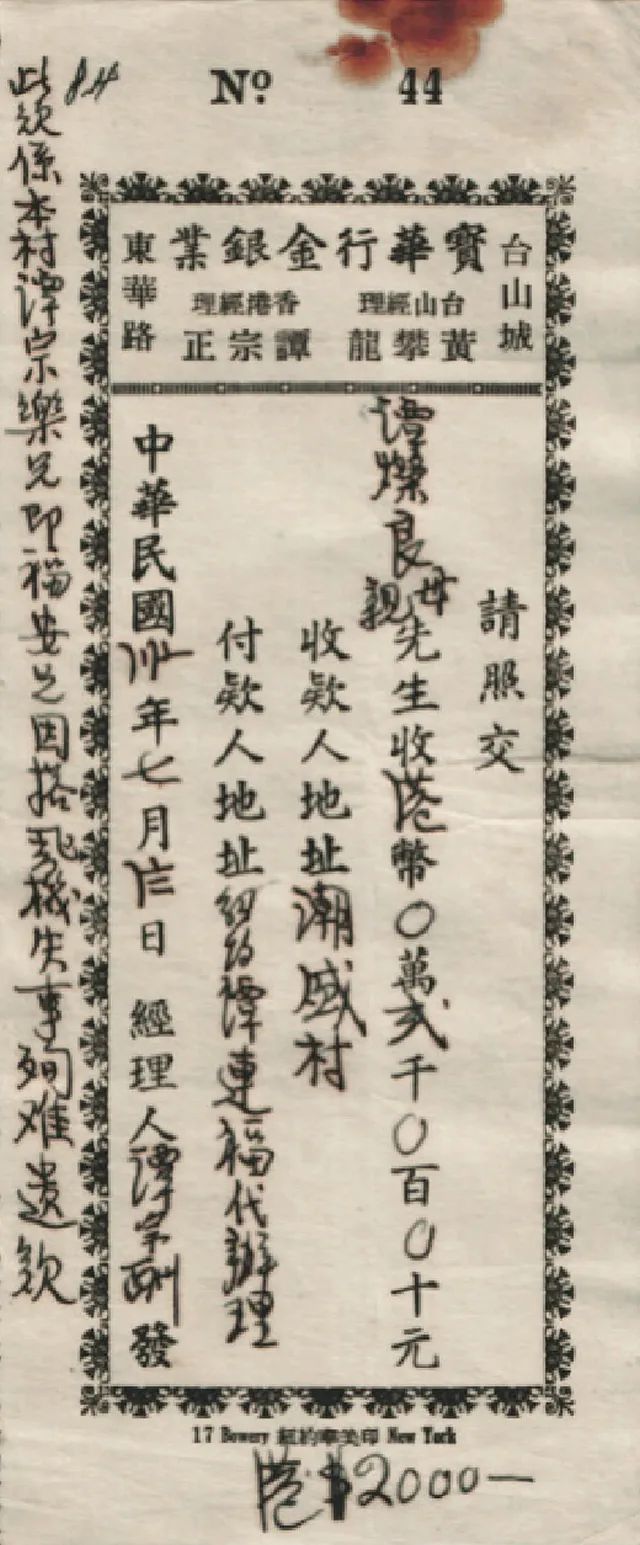 84
No. 44
台山城
寶華行金銀業
台山經理
黃攀龍
香港經理
譚宗正
東華路
請照交
譚燦良母親先生收港幣0萬弍千0百0十元
收欵人地址潮盛村
付欵人地址紐約譚連福代辦理
中華民國卅年七月日 經理人譚宗發
此欵係本村譚宗樂兄即福安兄因搭飛机失事殉难遺欵
17 Bowery 紐約華美印 New York
港$2000—